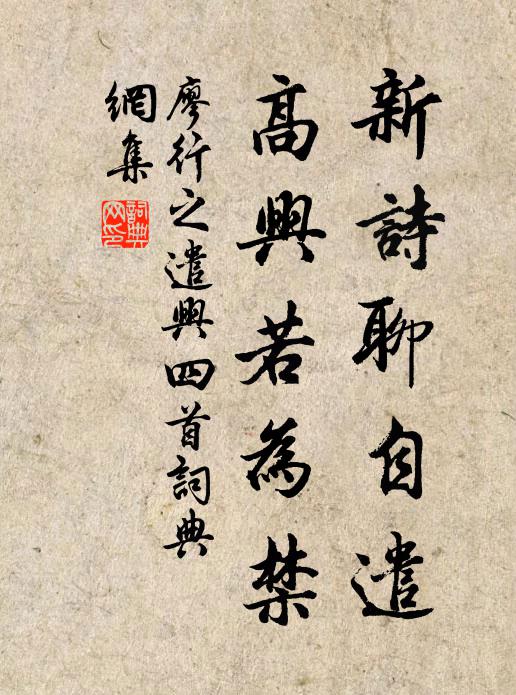 新詩聊自遣
高興若為禁
廖行之遣興四首詞典
網集
詞典網印